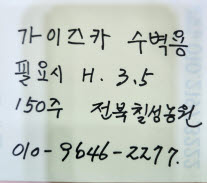 가이즈카 수벽용
필요시 H. 3.5
150주 전북칠성농원
010-9646-2277.